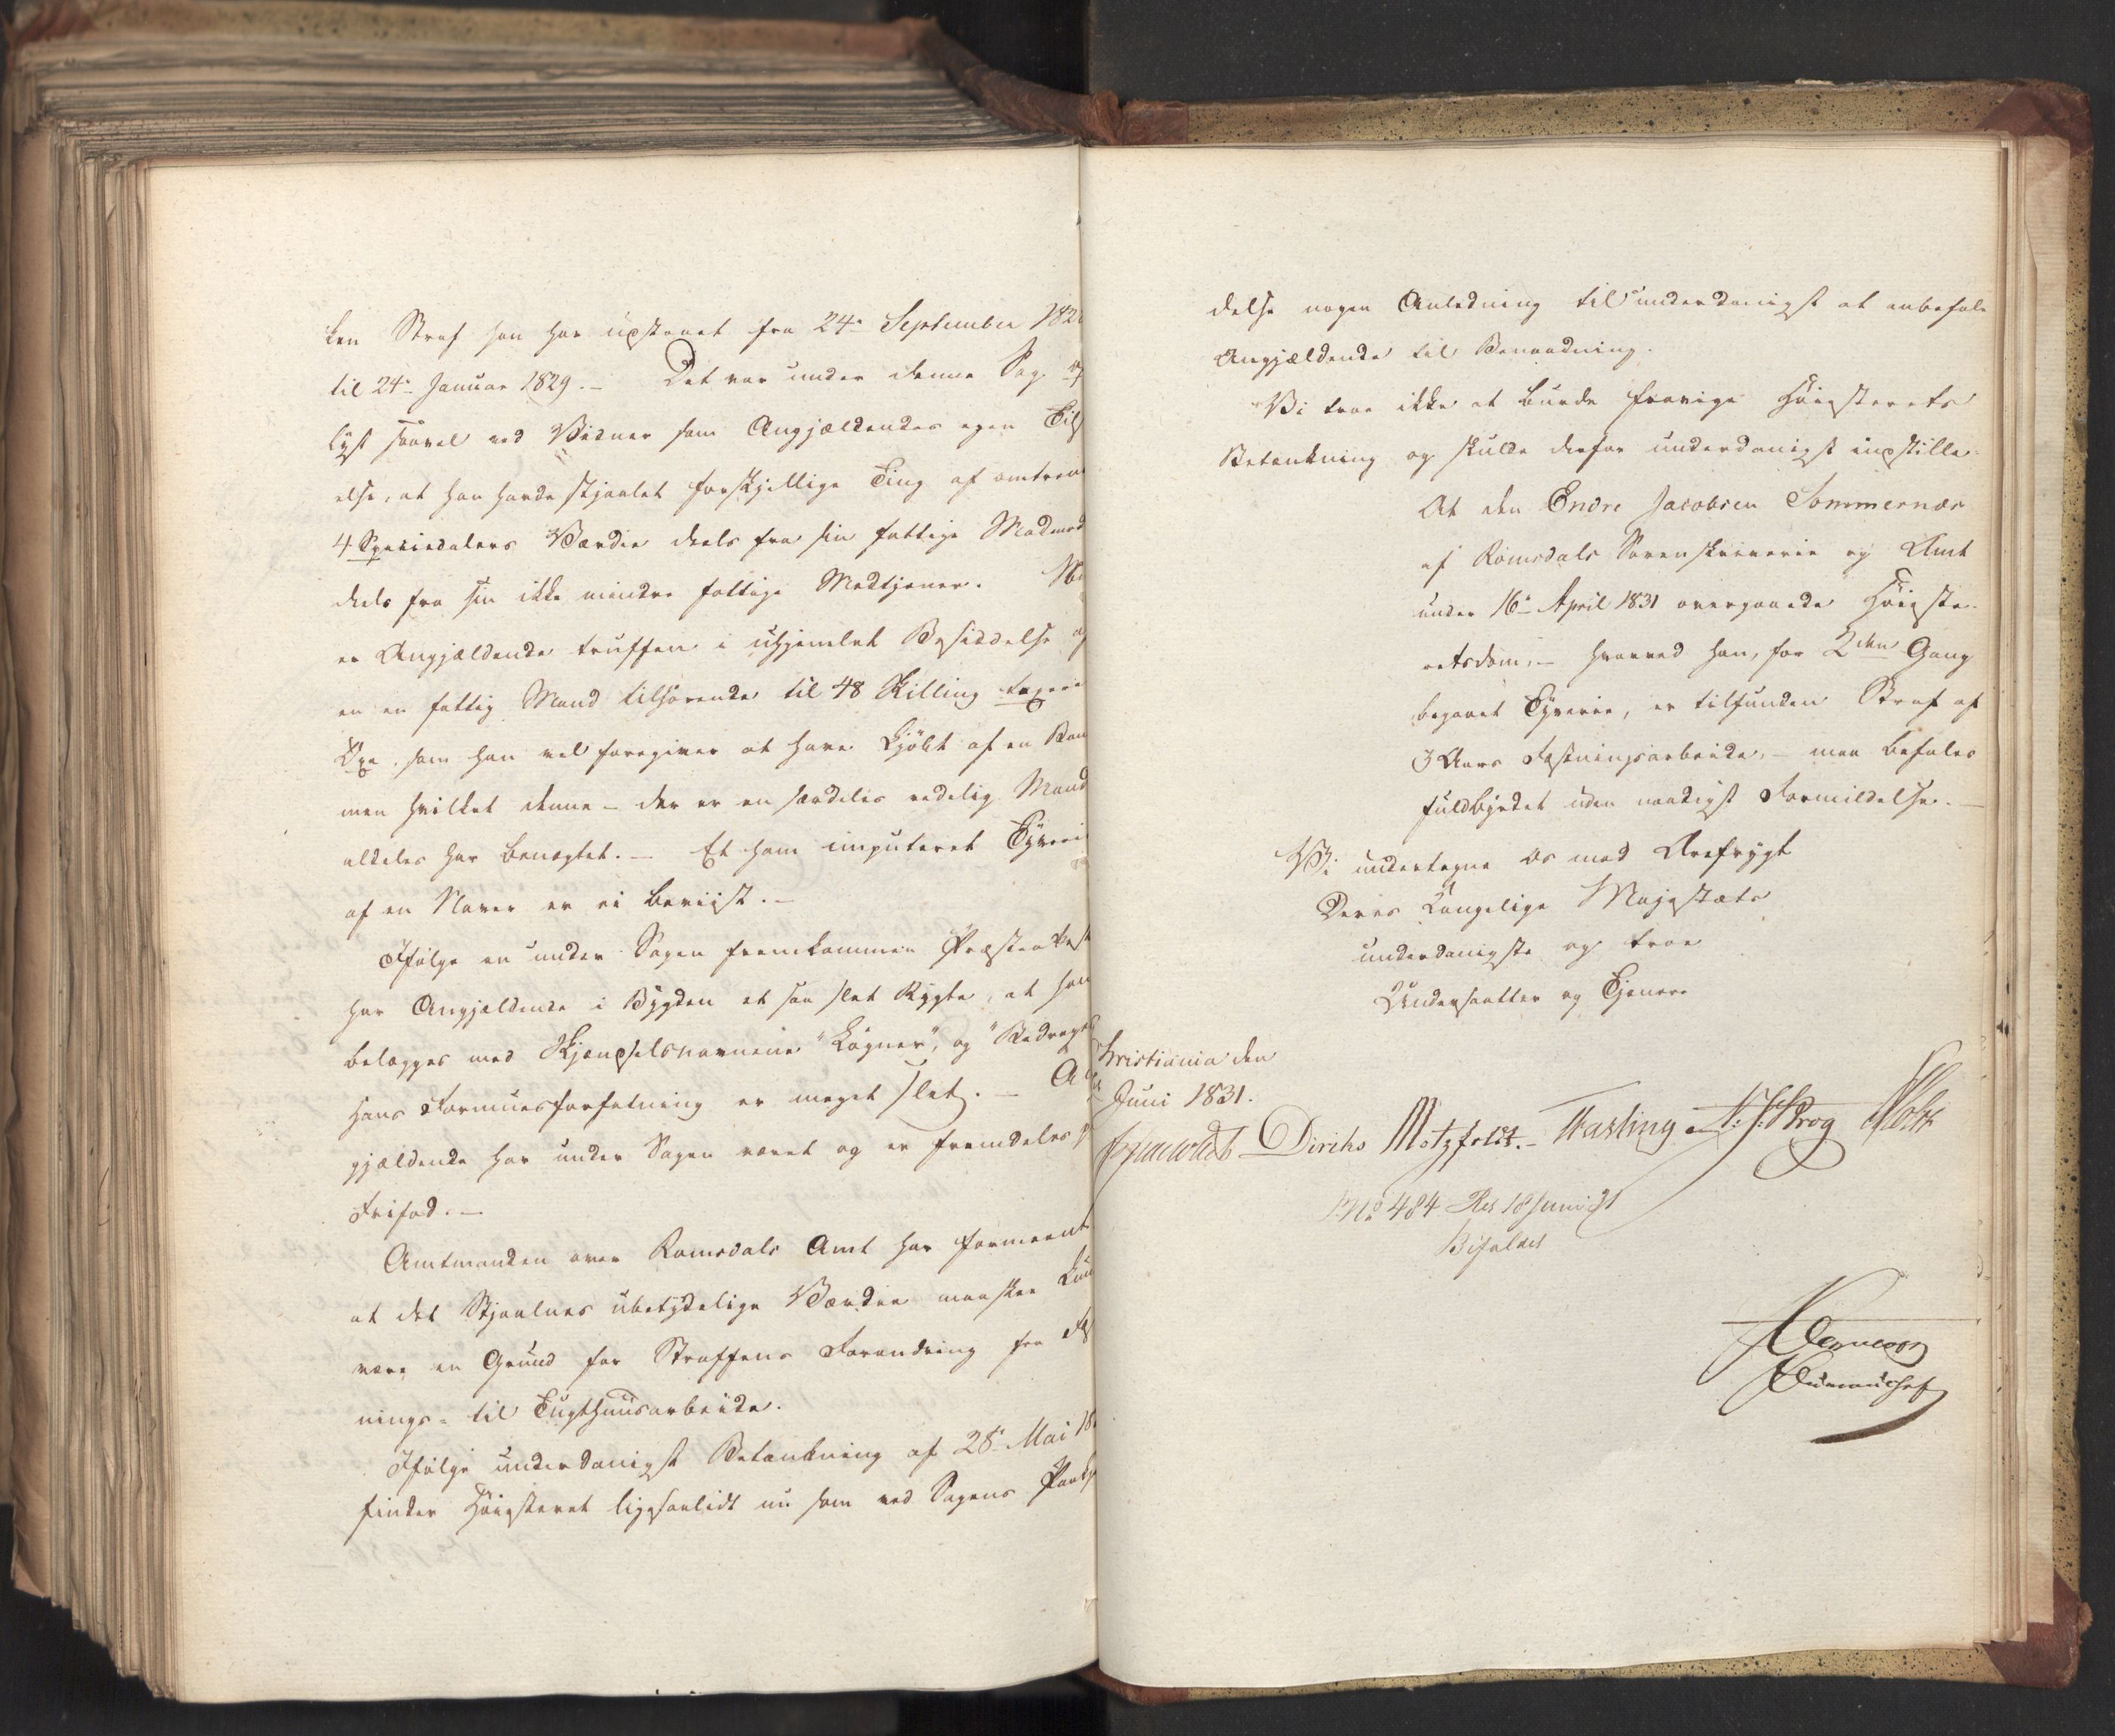 ken Straf han har udstaaet fra 24de September 182
til 24de Januar 1829. – Det var under denne Sag op
lyst saavel ved Vidner som Angjældendes egen Tils
else, at han havde stjaalet forskjellige Ting af omtrent
4 Speciedalers Værdie deels fra sin fattige Madmod
deels fra sin ikke mindre fattige Medtjener.
er Angjældende truffen i uhjemlet Besiddelse af
en en fattig Mand tilhørende til 48 Skilling taxeret
Øxe, som han vel foregiver at have kjøbt af en
men hvilket denne – der er en særdeles redelig Mand
aldeles har benægtet. – Et ham imputeret Tyverie
af en Naver er ei beviist. –
Ifølge en under Sagen fremkommen Præsteattest
har Angjældende i Bygden et saa slet Rygte, at han
belægges med Skjændselsnavnene "Løgner", og "Bedrager
Hans Formuesforfatning er meget slet. – An
gjældende har under Sagen været og er fremdeles p
Frifod. –
Amtmanden over Romsdals Amt har formeent
at det Stjaalnes ubetydelige Værdie maaskee kun
være en Grund for Straffens Forandring fra Fæst
nings- til Tugthuusarbeide.
Ifølge underdanigst Betænkning af 28de Mai 18
finder Høiesteret ligesaalidt nu som ved Sagens Paakj
delse nogen Anledning til underdanigst at anbefale
Angjældende til Benaadning.
Vi troe ikke at burde fravige Høiesterets
Betænkning og skulde derfor underdanigst indstille:
At den Endre Jacobsen Sommernæs
af Romsdals Sorenskriverie og Amt
under 16de April 1831 overgaaede Høieste-
retsdom, – hvorved han, for 2den Gang
begaaet Tyverie, er tilfunden Straf af
3 Aars Fæstningsarbeide, – maa befales
fuldbyrdet uden naadigst Formildelse. –
Vi undertegne os med Ærefrygt
Deres Kongelige Majestæts
underdanigste og troe
Undersaatter og Tjenere
Christiania den
Juni 1831.
Diriks Motzfeldt. – Fasting N. J. Krog Holst
No 484 Res 18 Juni 31
Bifaldes